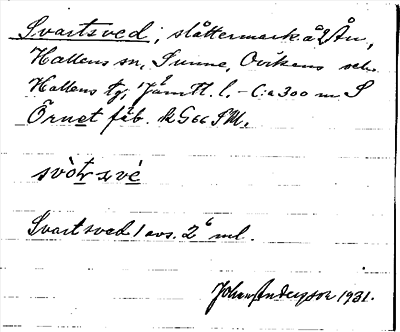 Svartsved, slåttermark å 2 Åv,
Hallens sn, Sunne, Ovikens och
Hallens tg, Jämtl. l. - C:a 300 m S
Örnet fäb. k G66 SM,
svòtṛ své
Svartsved 1 avs. 2 ml.
Johan Anderson 1931.